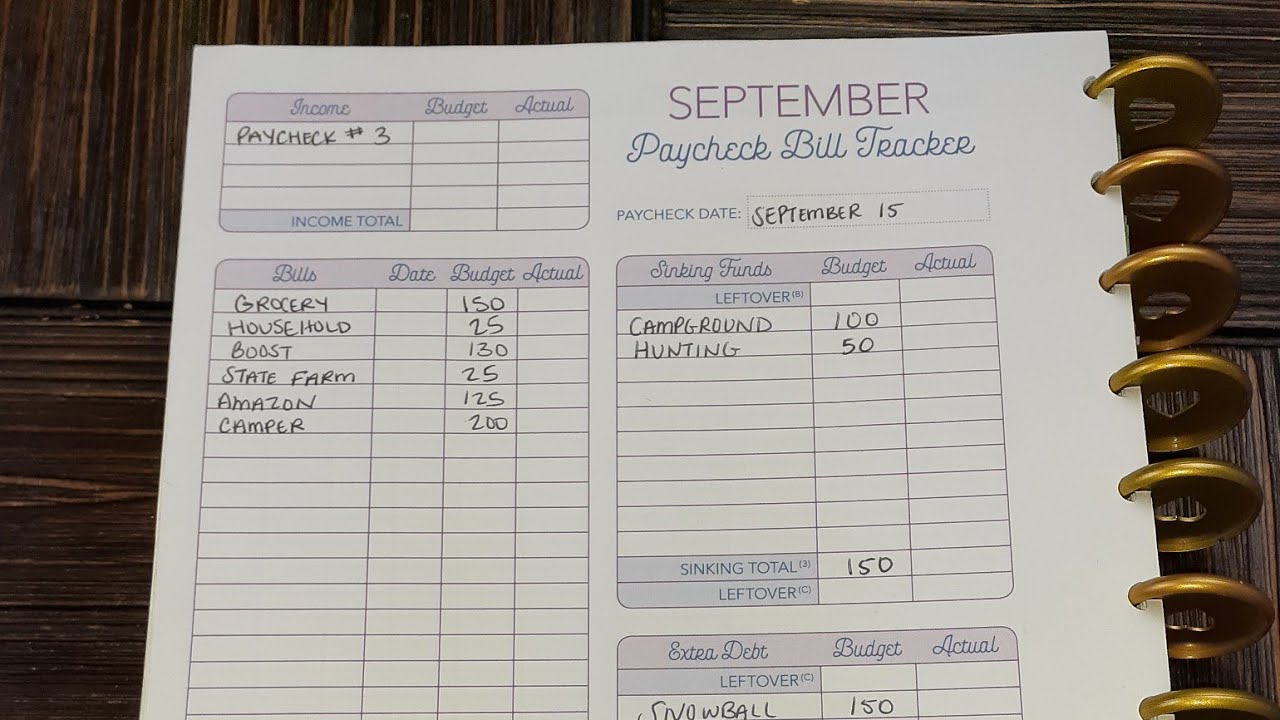 Income Budget Actual
PAYCHECK # 3
INCOME TOTAL
SEPTEMBER
Paycheck Bill Tracker
PAYCHECK DATE: SEPTEMBER 15
Bills Date Budget Actual
GROCERY 150
HOUSEHOLD 25
BOOST 130
STATE FARM 25
AMAZON 125
CAMPER 200
Sinking Funds Budget Actual
LEFTOVER(B)
CAMPGROUND 100
HUNTING 50
SINKING TOTAL(3) 150
LEFTOVER(C)
Extra Debt Budget Actual
LEFTOVER(C)
SNOWBALL 150